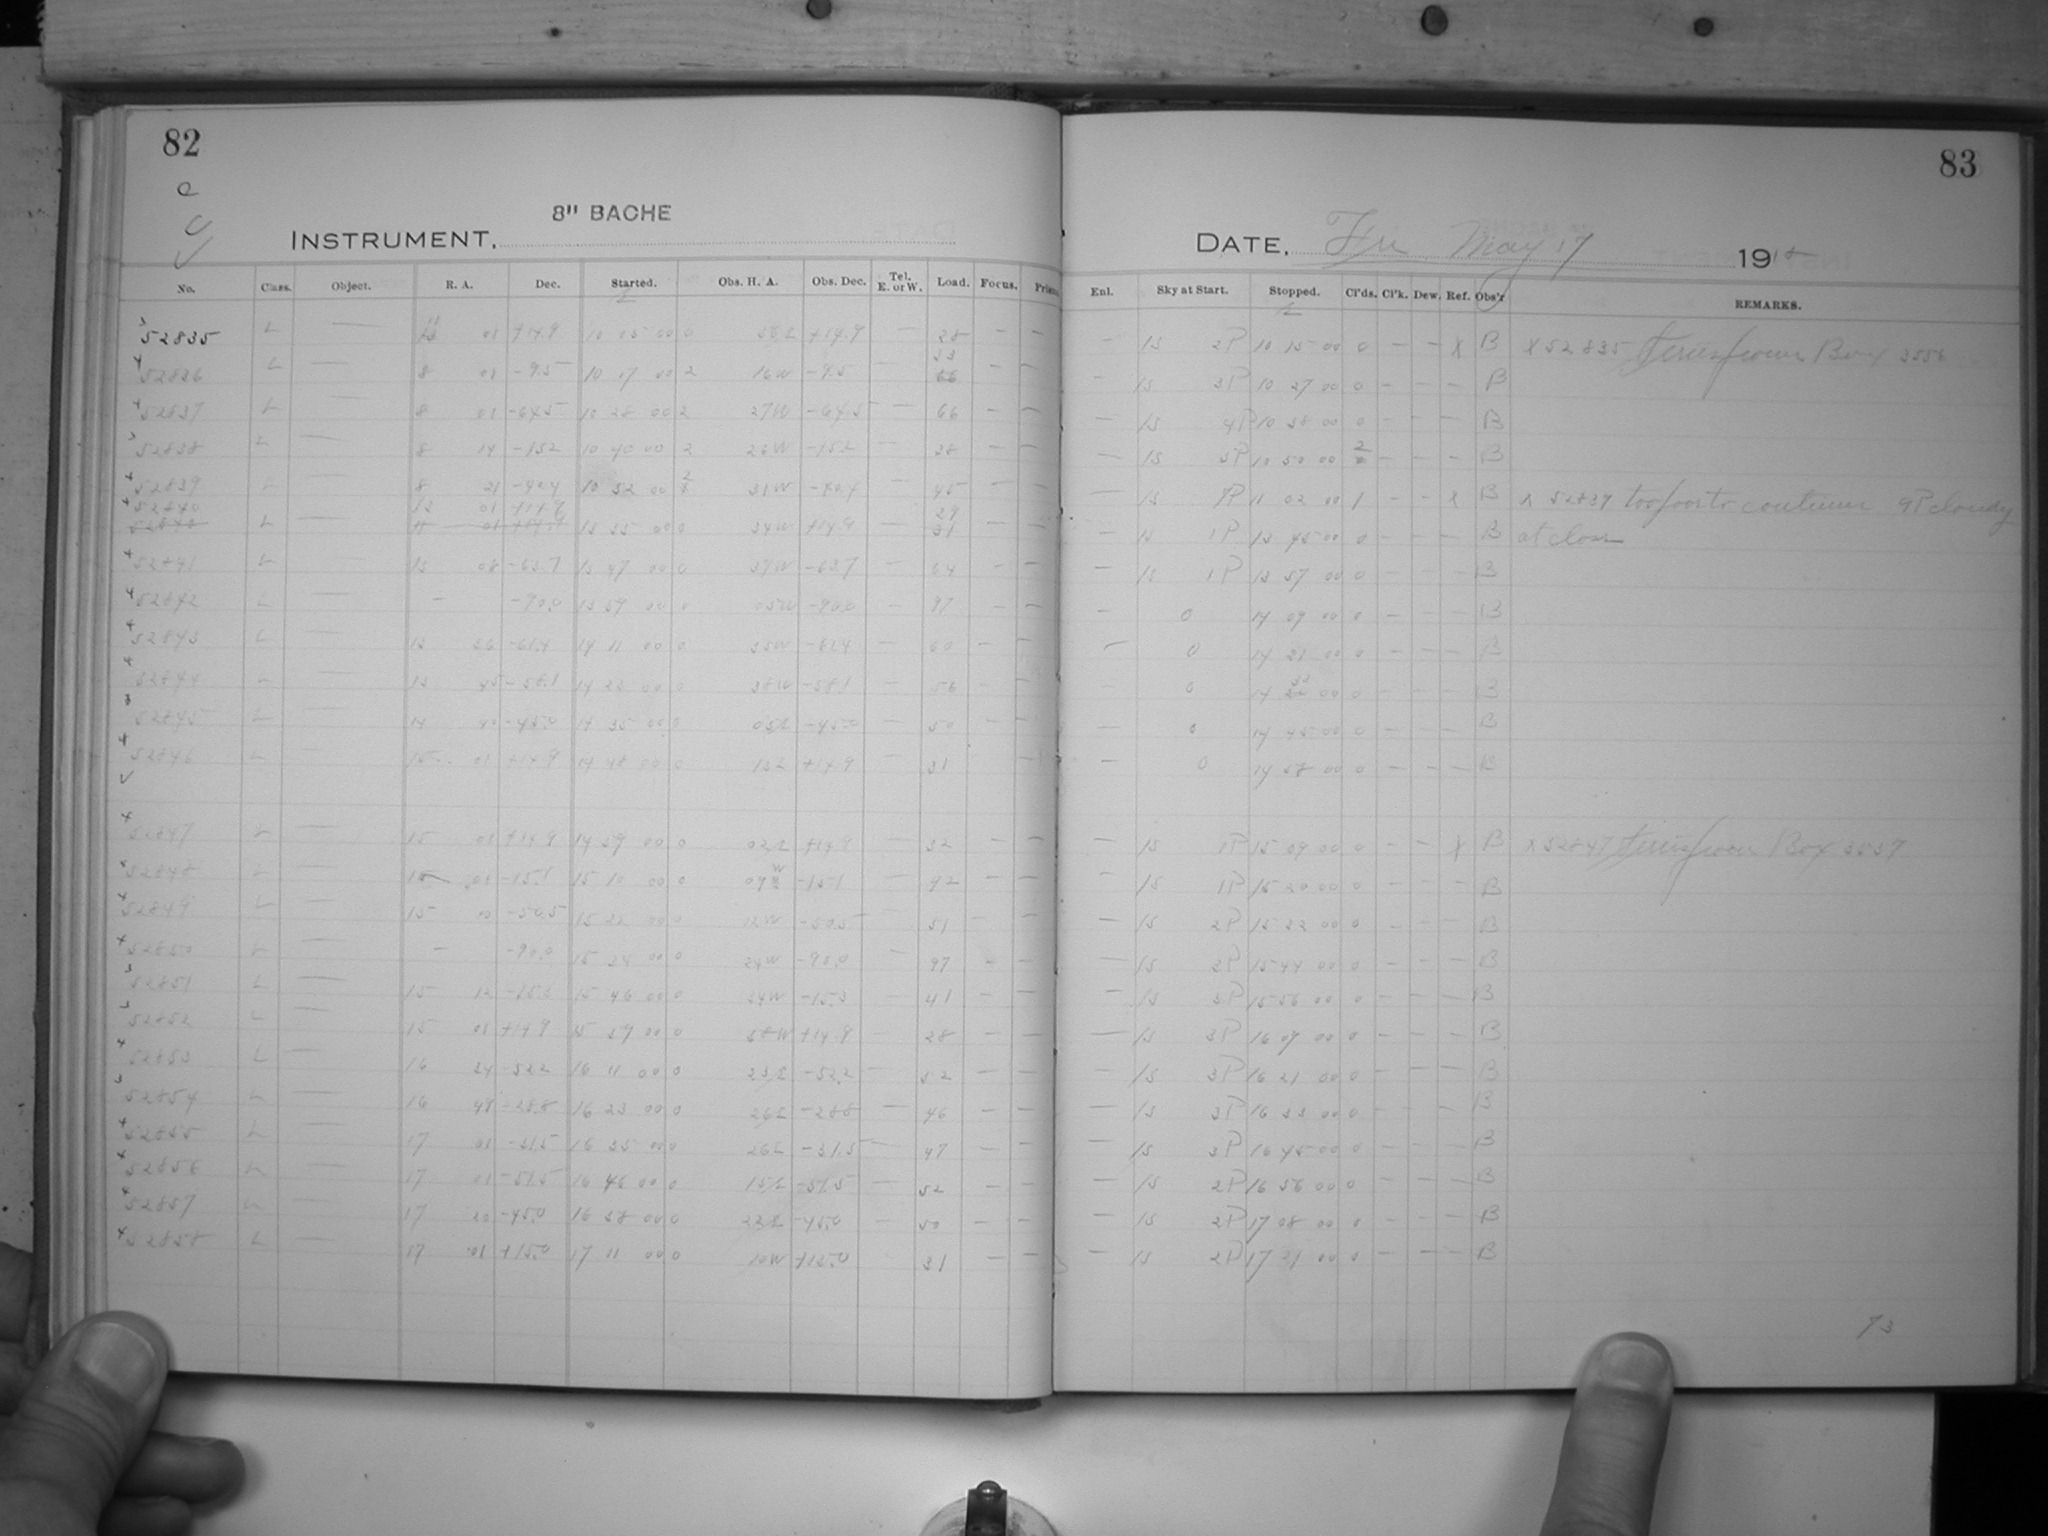 82
83
8" BACHE
INSTRUMENT,
DATE, Fri May 17 1918
No. Class. Object. R. A. Dec. Started. Obs. H. A. Obs. Dec. Tel. E. or W. Load. Focus.
Enl. Sky at Start. Stopped. Cl'ds. Cl'k. Dew. Ref. Obs'r REMARKS.
52835 L — 01 +14.9 10 05 00 0 +14.9 — 28 — —
— 15 2P 10 15 00 0 — — X B X 52835 Box
52836 L — 8 01 -9.5 10 17 00 2 16W -9.5 — — —
— 15 3P 10 27 00 0 — — — B
52837 L — 8 01 -64.5 10 28 00 2 27W -64.5 — 66 — —
— 15 4P 10 38 00 0 — — — B
52838 L — 8 14 -15.2 10 40 00 2 26W -15.2 — 38 — —
— 15 5P 10 50 00 2 — — — B
52839 L — 8 21 -40.4 10 52 00 2 31W -40.4 — 45 — —
— 15 9P 11 02 00 1 — — X B X 52839 too poor to continue 9P cloudy
52840 13 01 +14.9 29
L — 13 35 00 0 34W +14.9 —
— 15 1P 13 45 00 0 — — — B at close
52841 L — 13 08 -63.7 13 47 00 0 39W -63.7 — 64 — —
— 15 1P 13 57 00 0 — — — B
52842 L — — -90.0 13 59 00 0 05W -90.0 — 97 — —
— 0 14 09 00 0 — — — B
52843 L — 13 36 -61.4 14 11 00 0 35W -61.4 — 60 — —
— 0 14 21 00 0 — — — B
52844 L — 13 45 -58.1 14 23 00 0 38W -58.1 — 56 — —
— 0 14 33 00 0 — — — B
52845 L — 14 40 -45.0 14 35 00 0 05E -45.0 — 50 — —
— 0 14 45 00 0 — — — B
52846 L — 15 01 +14.9 14 48 00 0 13E +14.9 — 31 —
— 0 14 58 00 0 — — — B
52847 L — 15 01 +14.9 14 59 00 0 02E +14.9 — 32 — —
— 15 1P 15 09 00 0 — — X B X 52847 Box 3557
52848 L — 15 01 -15.1 15 10 00 0 09W -15.1 — 42 — —
— 15 1P 15 20 00 0 — — — B
52849 L — 15 10 -50.5 15 22 00 0 12W -50.5 — 51 — —
— 15 2P 15 32 00 0 — — — B
52850 L — — -90.0 15 34 00 0 24W -90.0 — 97 — —
— 15 3P 15 44 00 0 — — — B
52851 L — 15 12 -15.3 15 46 00 0 34W -15.3 — 41 — —
— 15 3P 15 56 00 0 — — — B
52852 L — 15 01 +14.9 15 57 00 0 58W +14.9 — 28 — —
— 15 3P 16 07 00 0 — — — B
52853 L — 16 34 -52.2 16 11 00 0 23E -52.2 — 52 — —
— 15 3P 16 21 00 0 — — — B
52854 L — 16 49 -28.8 16 23 00 0 26E -28.8 — 46 — —
— 15 3P 16 33 00 0 — — — B
52855 L — 17 01 -31.5 16 35 00 0 26E -31.5 — 47 — —
— 15 3P 16 45 00 0 — — — B
52856 L — 17 01 -51.5 16 46 00 0 15E -51.5 — 52 — —
— 15 2P 16 56 00 0 — — — B
52857 L — 17 20 -45.0 16 58 00 0 22E -45.0 — 50 — —
— 15 2P 17 08 00 0 — — — B
52858 L — 17 01 +15.0 17 11 00 0 10W +15.0 — 31 — —
— 15 2P 17 21 00 0 — — — B